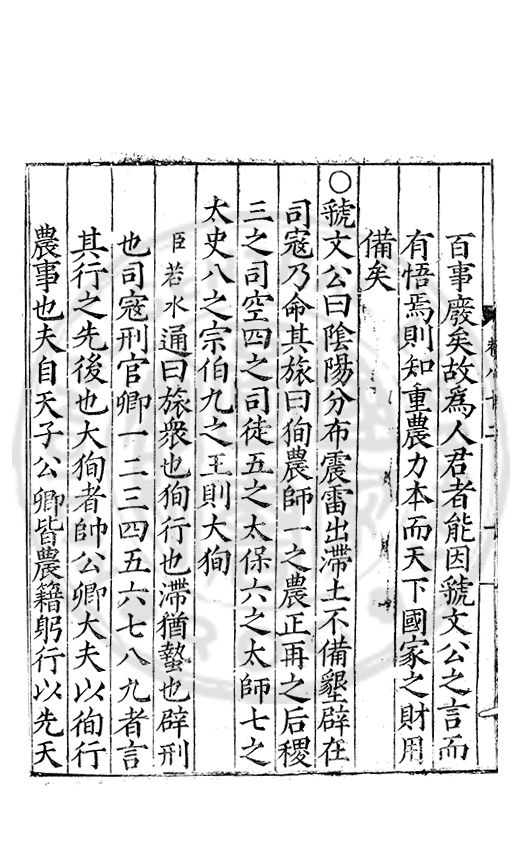 百事廢矣故爲人君者能因虢文公之言而
有悟焉則知重農力本而天下國家之財用
備矣
○虢文公曰陰陽分布震雷出滯土不備墾辟在
司寇乃命其旅曰徇農師一之農正再之后稷
三之司空四之司徒五之太保六之太師七之
太史八之宗伯九之王則大徇
臣若水通曰旅衆也徇行也滯猶蟄也辟刑
也司寇刑官卿一二三四五六七八九者言
其行之先後也大徇者帥公卿大夫以徇行
農事也夫自天子公卿皆農籍躬行以先天